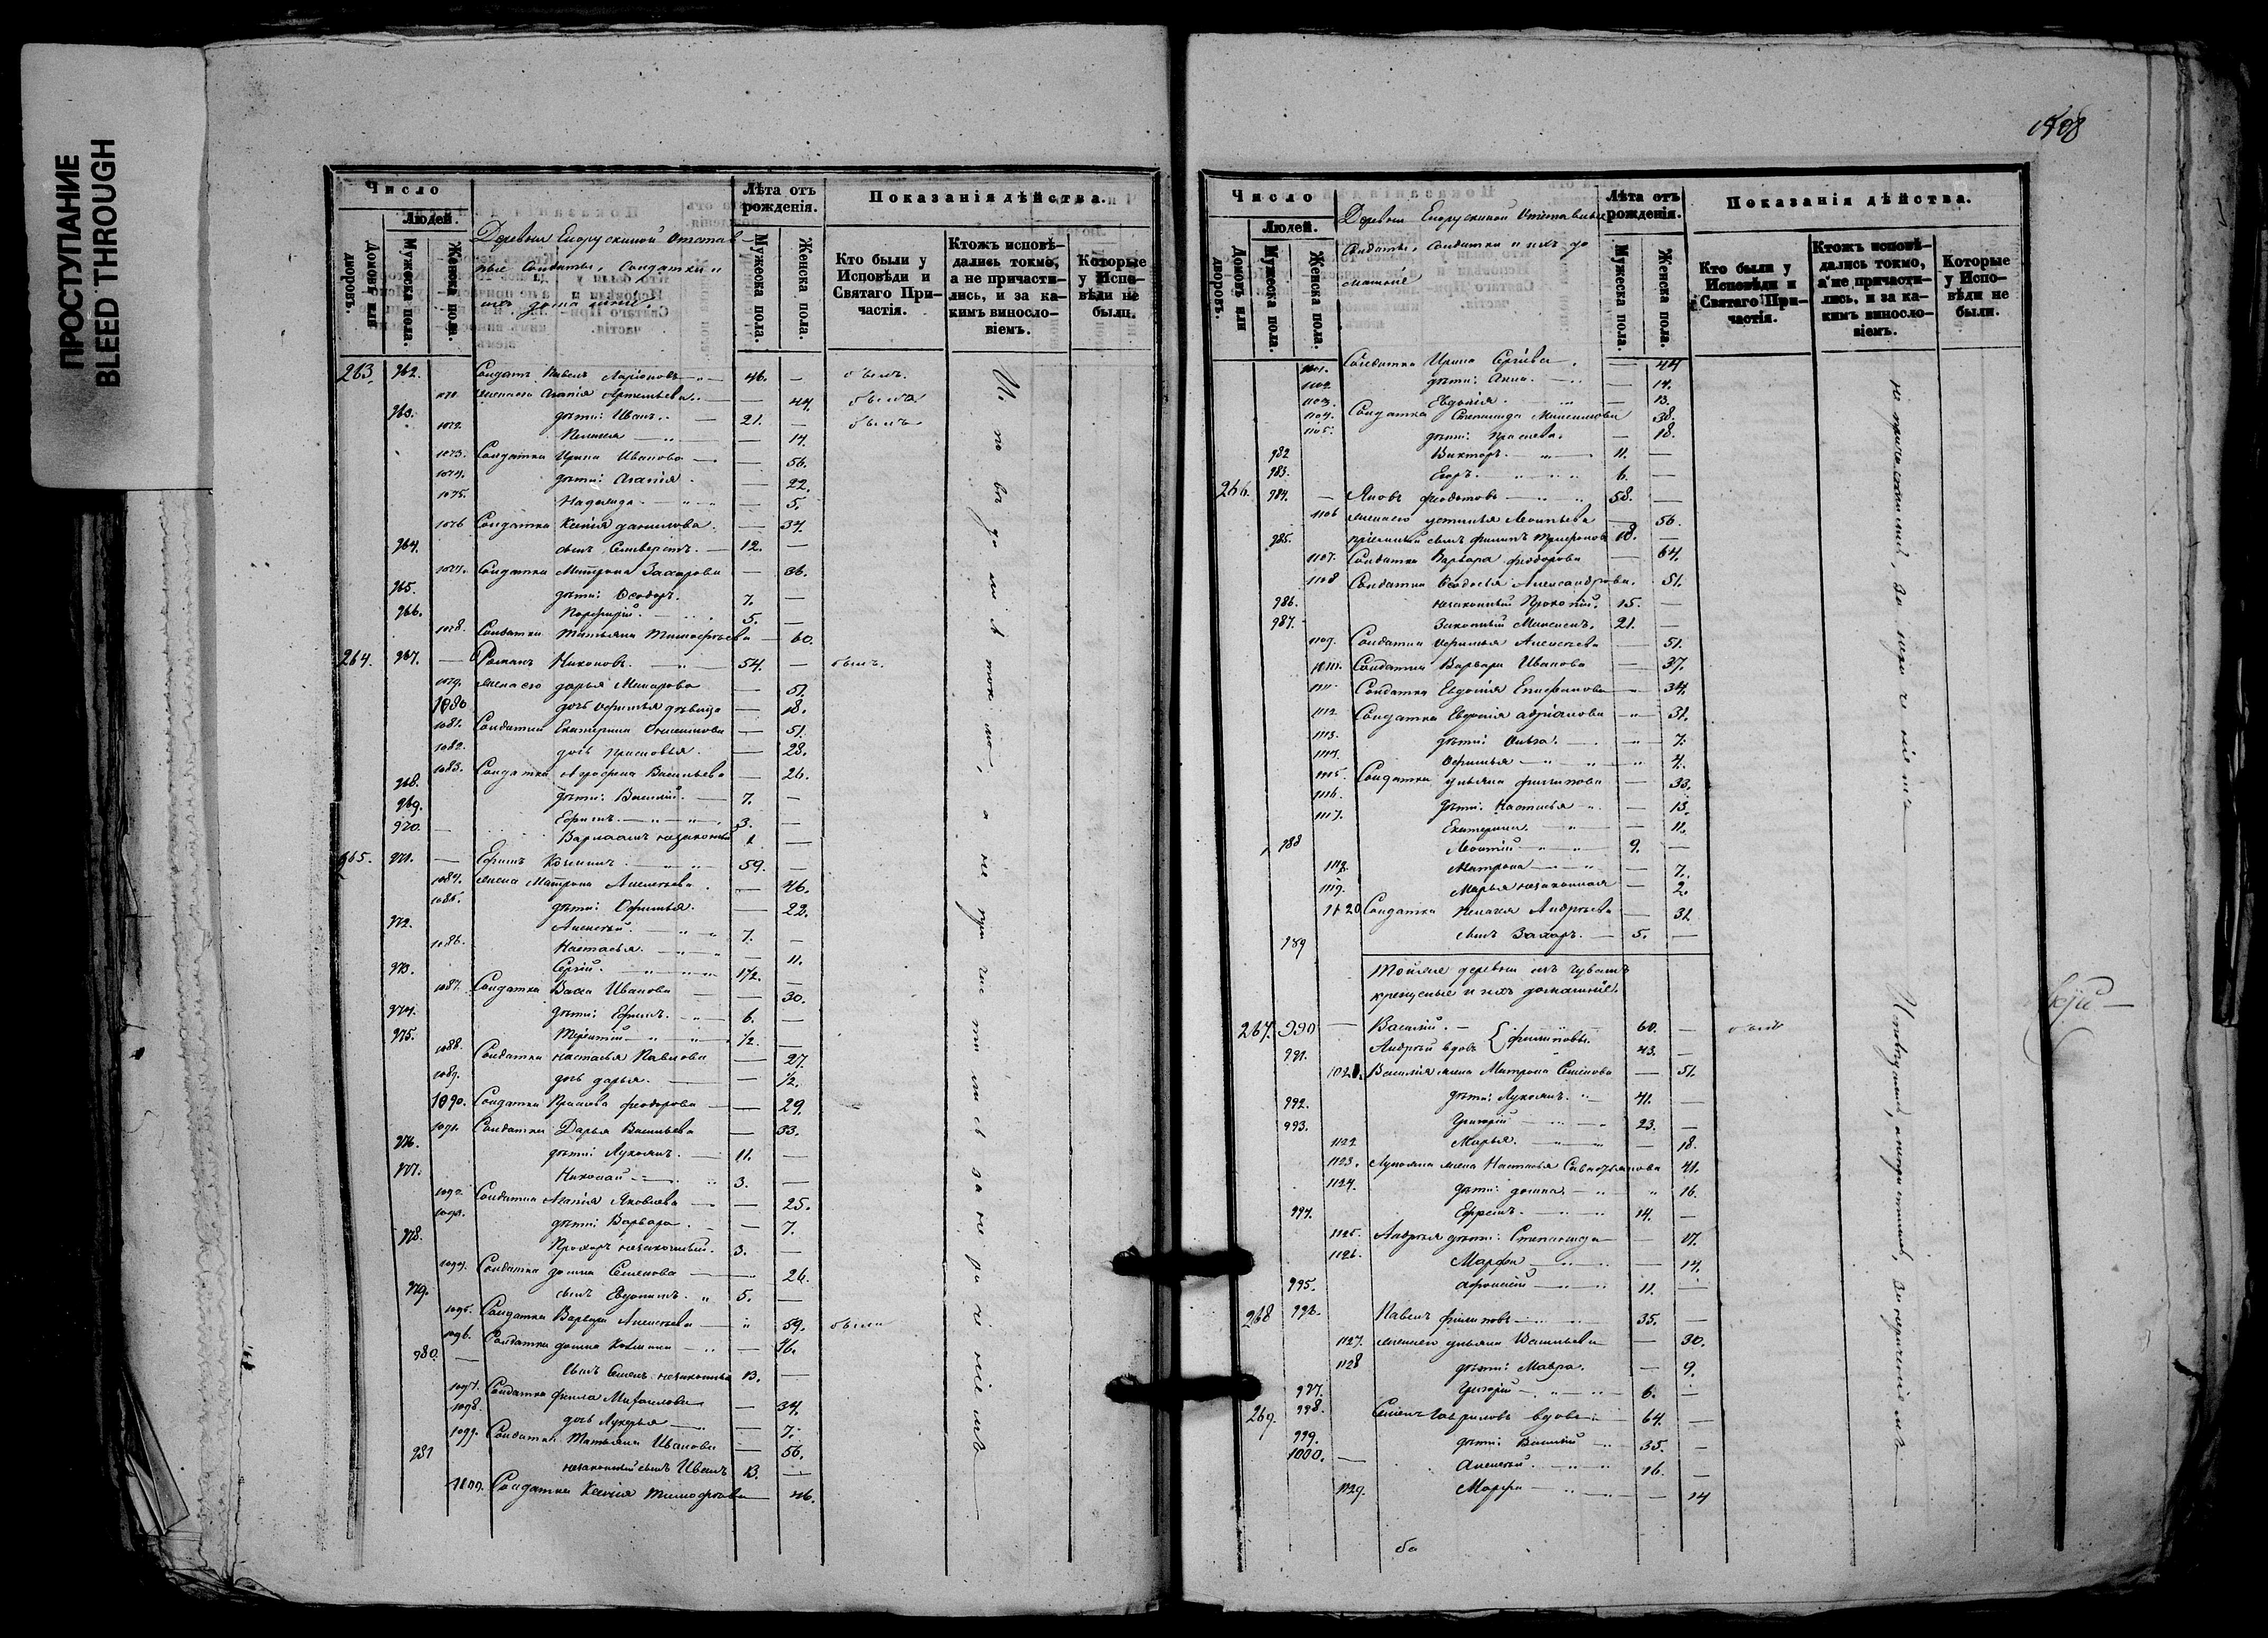 ПРОСТУПАНИЕ
BLEED THROUGH
Число
Людей.
Домовъ или дворовъ.
Мужеска пола.
Женска пола.
Деревни Енорускиной отстав
ные Солдаты, Солдатки и
ихъ домашніе
Лѣта отъ рожденія.
Мужеска пола.
Женска пола.
Показанія дѣйства.
Кто были у Исповѣди и Святаго При-
частія.
Ктожъ исповѣ-
дались токмо, а не причасти-
лись, и за ка-
кимъ винос­ло-
віемъ.
Которые у Испо-
вѣди не были.
263. 962. Солдатъ Павелъ Ларіоновъ 46. — былъ.
жена его Агапія Артемьева — 44. была
963. дѣти: Иванъ. 21. — былъ
1072. Пелагея — 14.
1073. Солдатка Ирина Иванова — 56.
1074. дѣти: Агапія — 22.
1075. Надежда — 5.
1076 Солдатка Ксенія Данилова — 34.
964. сынъ Селиверстъ. 12. —
1077. Солдатка Матрона Захарова — 36.
965. дѣти: Ѳеодоръ. 7. —
966. Порфирій. 5. —
1078. Солдатка Татьяна Тимофѣева — 60.
264. 967. — Романъ Никоновъ. 54. — былъ.
1079. жена его Дарья Макарова — 51.
1080 дочь Офимья дѣвица — 18.
1081. Солдатка Екатерина — 51.
1082. дочь Прасковья. — 28.
1083. Солдатка Агрофена Васильева — 26.
968. дѣти: Василій. 7. —
969. Ефимъ. 3. —
970. Варлаамъ незаконный 1 —
265. 971. — Ефимъ Козминъ. 59. —
1084. жена Матрона Алексѣева. — 46.
1085. дѣти: Офимья. — 22.
972. Алексѣй. 7. —
1086. Настасья. — 11.
973. Сергій. 1/2. —
1087. Солдатка Васса Иванова — 30.
974. дѣти: Ефимъ. 6. —
975. Терентій 1/2. —
1088. Солдатка Настасья Павлова — 27.
1089. дочь Дарья. — 1/2.
1090. Солдатка Ѳеодорова — 29.
1091. Солдатка Дарья Васильева — 33.
976. дѣти: Лукоянъ. 11. —
977. Николай 3. —
1092. Солдатка Агапія Яковлева — 25.
1093. дѣти: Варвара. — 7.
978. Прохоръ незаконный. 3. —
1094. Солдатка Домна Семенова — 26.
979. сынъ Евдокимъ. 5. —
1095. Солдатка Варвара Алексѣева — 59. была
1096. Солдатка Домна Козмина — 46.
980. — сынъ Семенъ незаконный 13. —
1097. Солдатка Ѳекла Михаилова — 34.
1098. дочь Лукерья — 7.
1099. Солдатка Татьяна Иванова — 56.
981 незаконный сынъ Иванъ 13. —
1100. Солдатка Ксенія Тимофѣева — 46.
Исповѣдались токмо, а не причастились за нераченіемъ
1508
Число
Людей.
Домовъ или дворовъ.
Мужеска пола.
Женска пола.
Деревни Енорускиной Отставные
Солдаты, Солдатки и ихъ до
машніе
Лѣта отъ рожденія.
Мужеска пола.
Женска пола.
Показанія дѣйства.
Кто были у Исповѣди и Святаго При-
частія.
Ктожъ исповѣ-
дались токмо, а не причасти-
лись, и за ка-
кимъ винос­ло-
віемъ.
Которые у Испо-
вѣди не были.
1101. Солдатка Ирина Сергѣева — 44
1102. дѣти: Анна. — 14.
1103. Евдокія. — 13.
1104. Солдатка Степанида Максимова 38.
1105. дѣти: — 18.
982 Викторъ. 11. —
983. Егоръ. 6. —
266. 984. — Яковъ Ѳеодотовъ 58. —
1106 жена его Устинья Леонтьева — 56.
985. пріемный сынъ Филипъ Трифоновъ 18. —
1107. Солдатка Варвара Ѳеодорова — 64.
1108 Солдатка Ѳеодосья Александрова. 51.
986. незаконный Прокопій. 15. —
987. Законный Максимъ. 21. —
1109. Солдатка Офимья Алексѣева — 51.
1110. Солдатка Варвара Иванова — 37.
1111. Солдатка Евдокія Епифанова — 34.
1112 Солдатка Евдокія Адріанова — 31.
1113. дѣти: Ольга. — 7.
1114. Офимья 4.
1115. Солдатка Ульяна Филипова — 33.
1116. дѣти: Настасья — 13.
1117. Екатерина. — 11.
988 Леонтій 9. —
1118. Матрона — 7.
1119. Марья незаконная — 2.
1120 Солдатка Пелагея Андрѣева — 31.
989 сынъ Захаръ. 5. —
Тойже деревни изъ чувашъ
крещеные и ихъ домашніе.
267. 990 — Василій. 60. — былъ
991. Андрѣй вдовъ { Филиповы. 43. —
1021. Василія жена Матрона Семенова — 51.
992. дѣти: Лукоянъ. 41. —
993. Григорій 23. —
1122 Марья. — 18.
1123. Лукояна жена Настасья Савастьянова 41.
1124. дѣти: Домна. 16.
994. Ефремъ. 14. —
1125. Андрѣя дѣти: Степанида — 17.
1126. Марфа — 14.
995. Афонасій 11. —
268 996. Павелъ Филиповъ 35. —
1127. жена его Ульяна Васильева — 30.
1128 дѣти: Мавра. — 9.
997. Григорій 6. —
269. 998. Семенъ Гавриловъ вдовъ 64. —
999. дѣти: Василій 35. —
1000. — Алексѣй. 16. —
1129. Марфа — 14
не причастились, за нераченіемъ
Исповѣдались, не причастились, за нераченіемъ